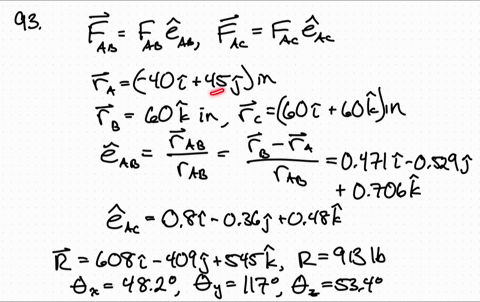 93. F⃗_AB = F_AB ê_AB, F⃗_AC = F_AC ê_AC
r⃗_A = (-40î + 45ĵ) in
r⃗_B = 60k̂ in, r⃗_C = (60î + 60k̂) in
ê_AB = r⃗_AB / r_AB = (r⃗_B - r⃗_A) / r_AB = 0.471î - 0.529ĵ
+ 0.706k̂
ê_AC = 0.8î - 0.36ĵ + 0.48k̂
R⃗ = 608î - 409ĵ + 545k̂, R = 913 lb
θ_x = 48.2°, θ_y = 117°, θ_z = 53.4°